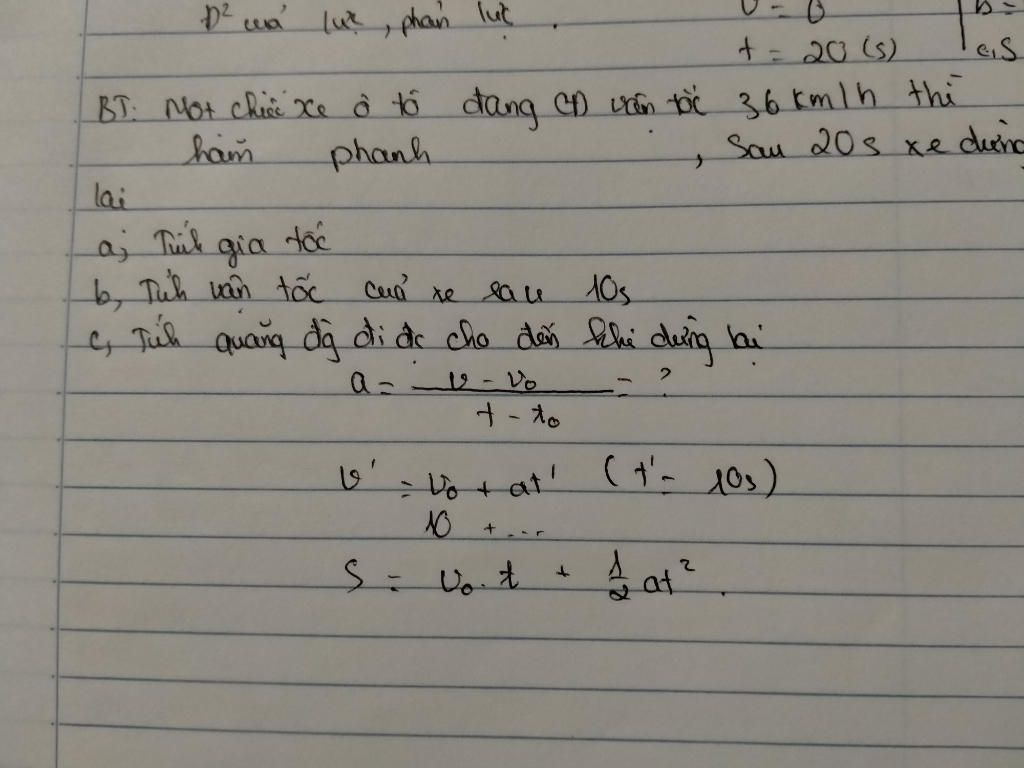 Đ² của lực, phản lực.
v = 0
t = 20 (s)
c, S
BT: Một chiếc xe ô tô đang CĐ vận tốc 36 km/h thì
hãm phanh , sau 20s xe dừng
lại
a, Tính gia tốc
b, Tính vận tốc của xe sau 10s
c, Tính quãng đg đi đc cho đến khi dừng lại
a = (v - v₀)/(t - t₀) = ?
v' = v₀ + at' (t' = 10s)
10 + ...
S = v₀.t + 1/2 at².